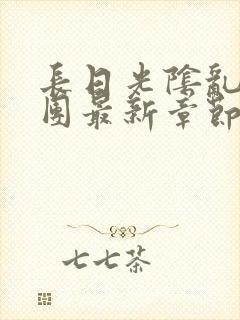 長日光陰亂
團最新章節
七七茶